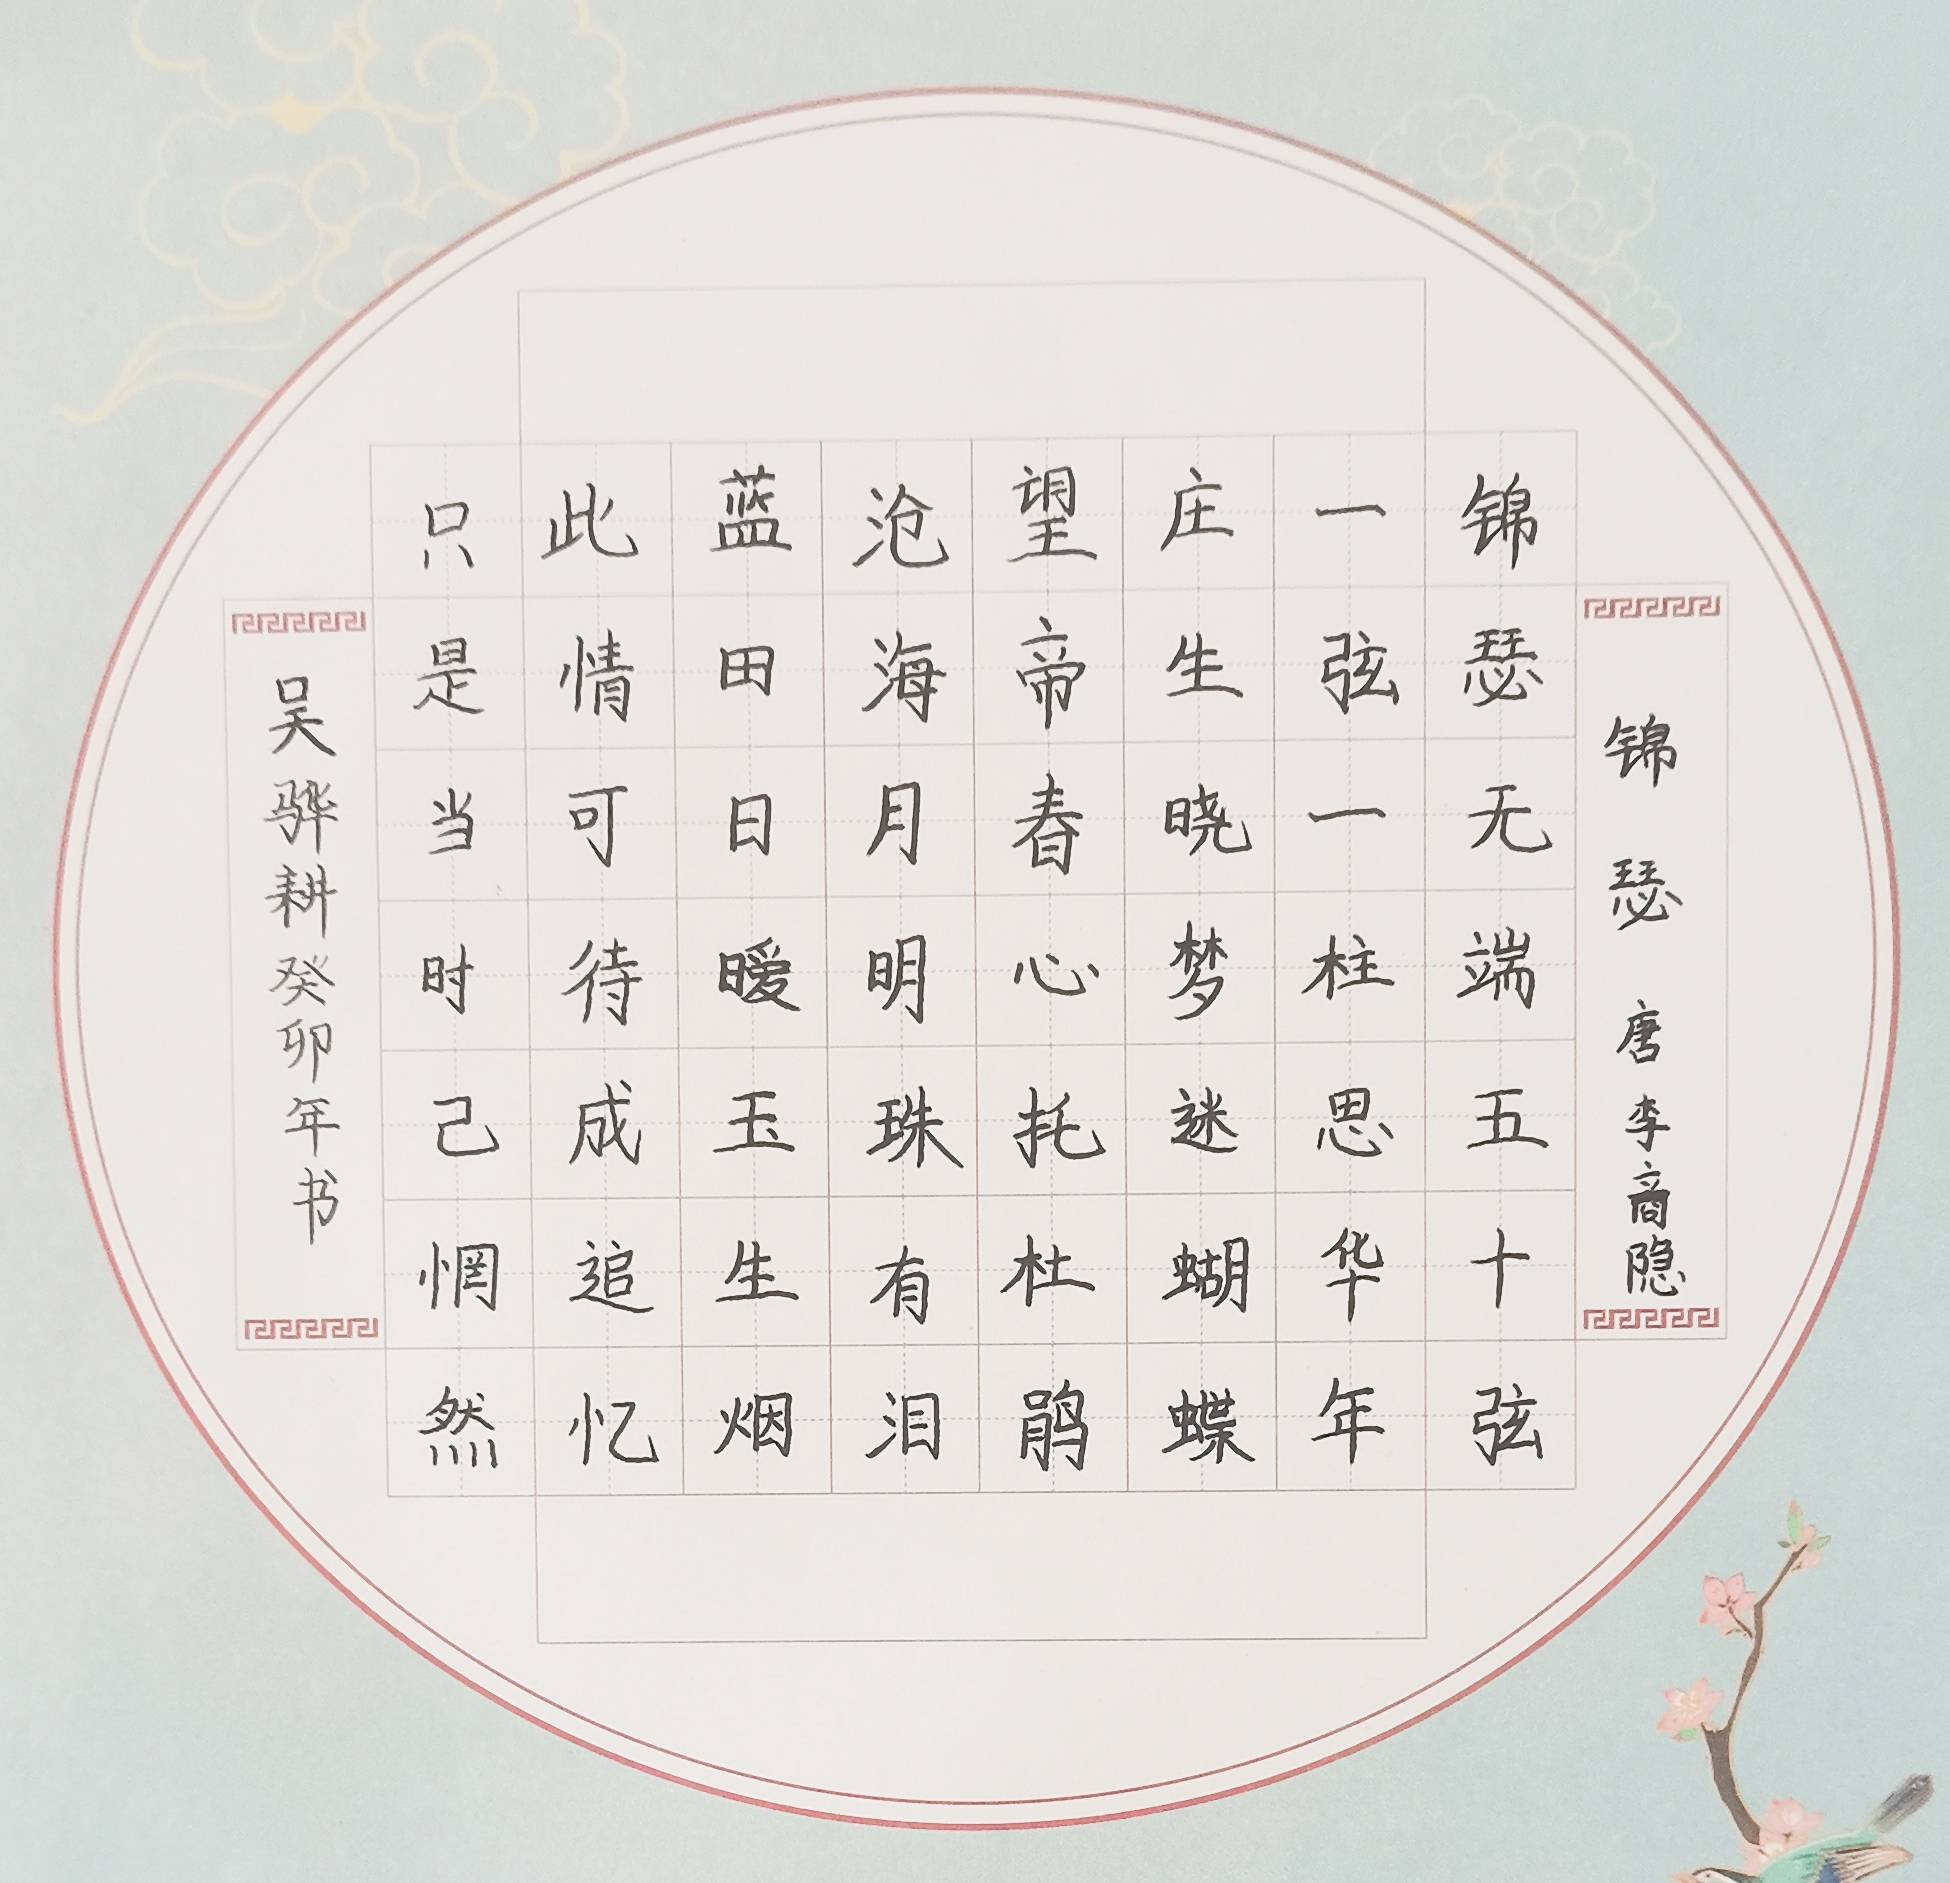 锦瑟 唐 李商隐
锦瑟无端五十弦
一弦一柱思华年
庄生晓梦迷蝴蝶
望帝春心托杜鹃
沧海月明珠有泪
蓝田日暧玉生烟
此情可待成追忆
只是当时己惘然
吴骅耕癸卯年书